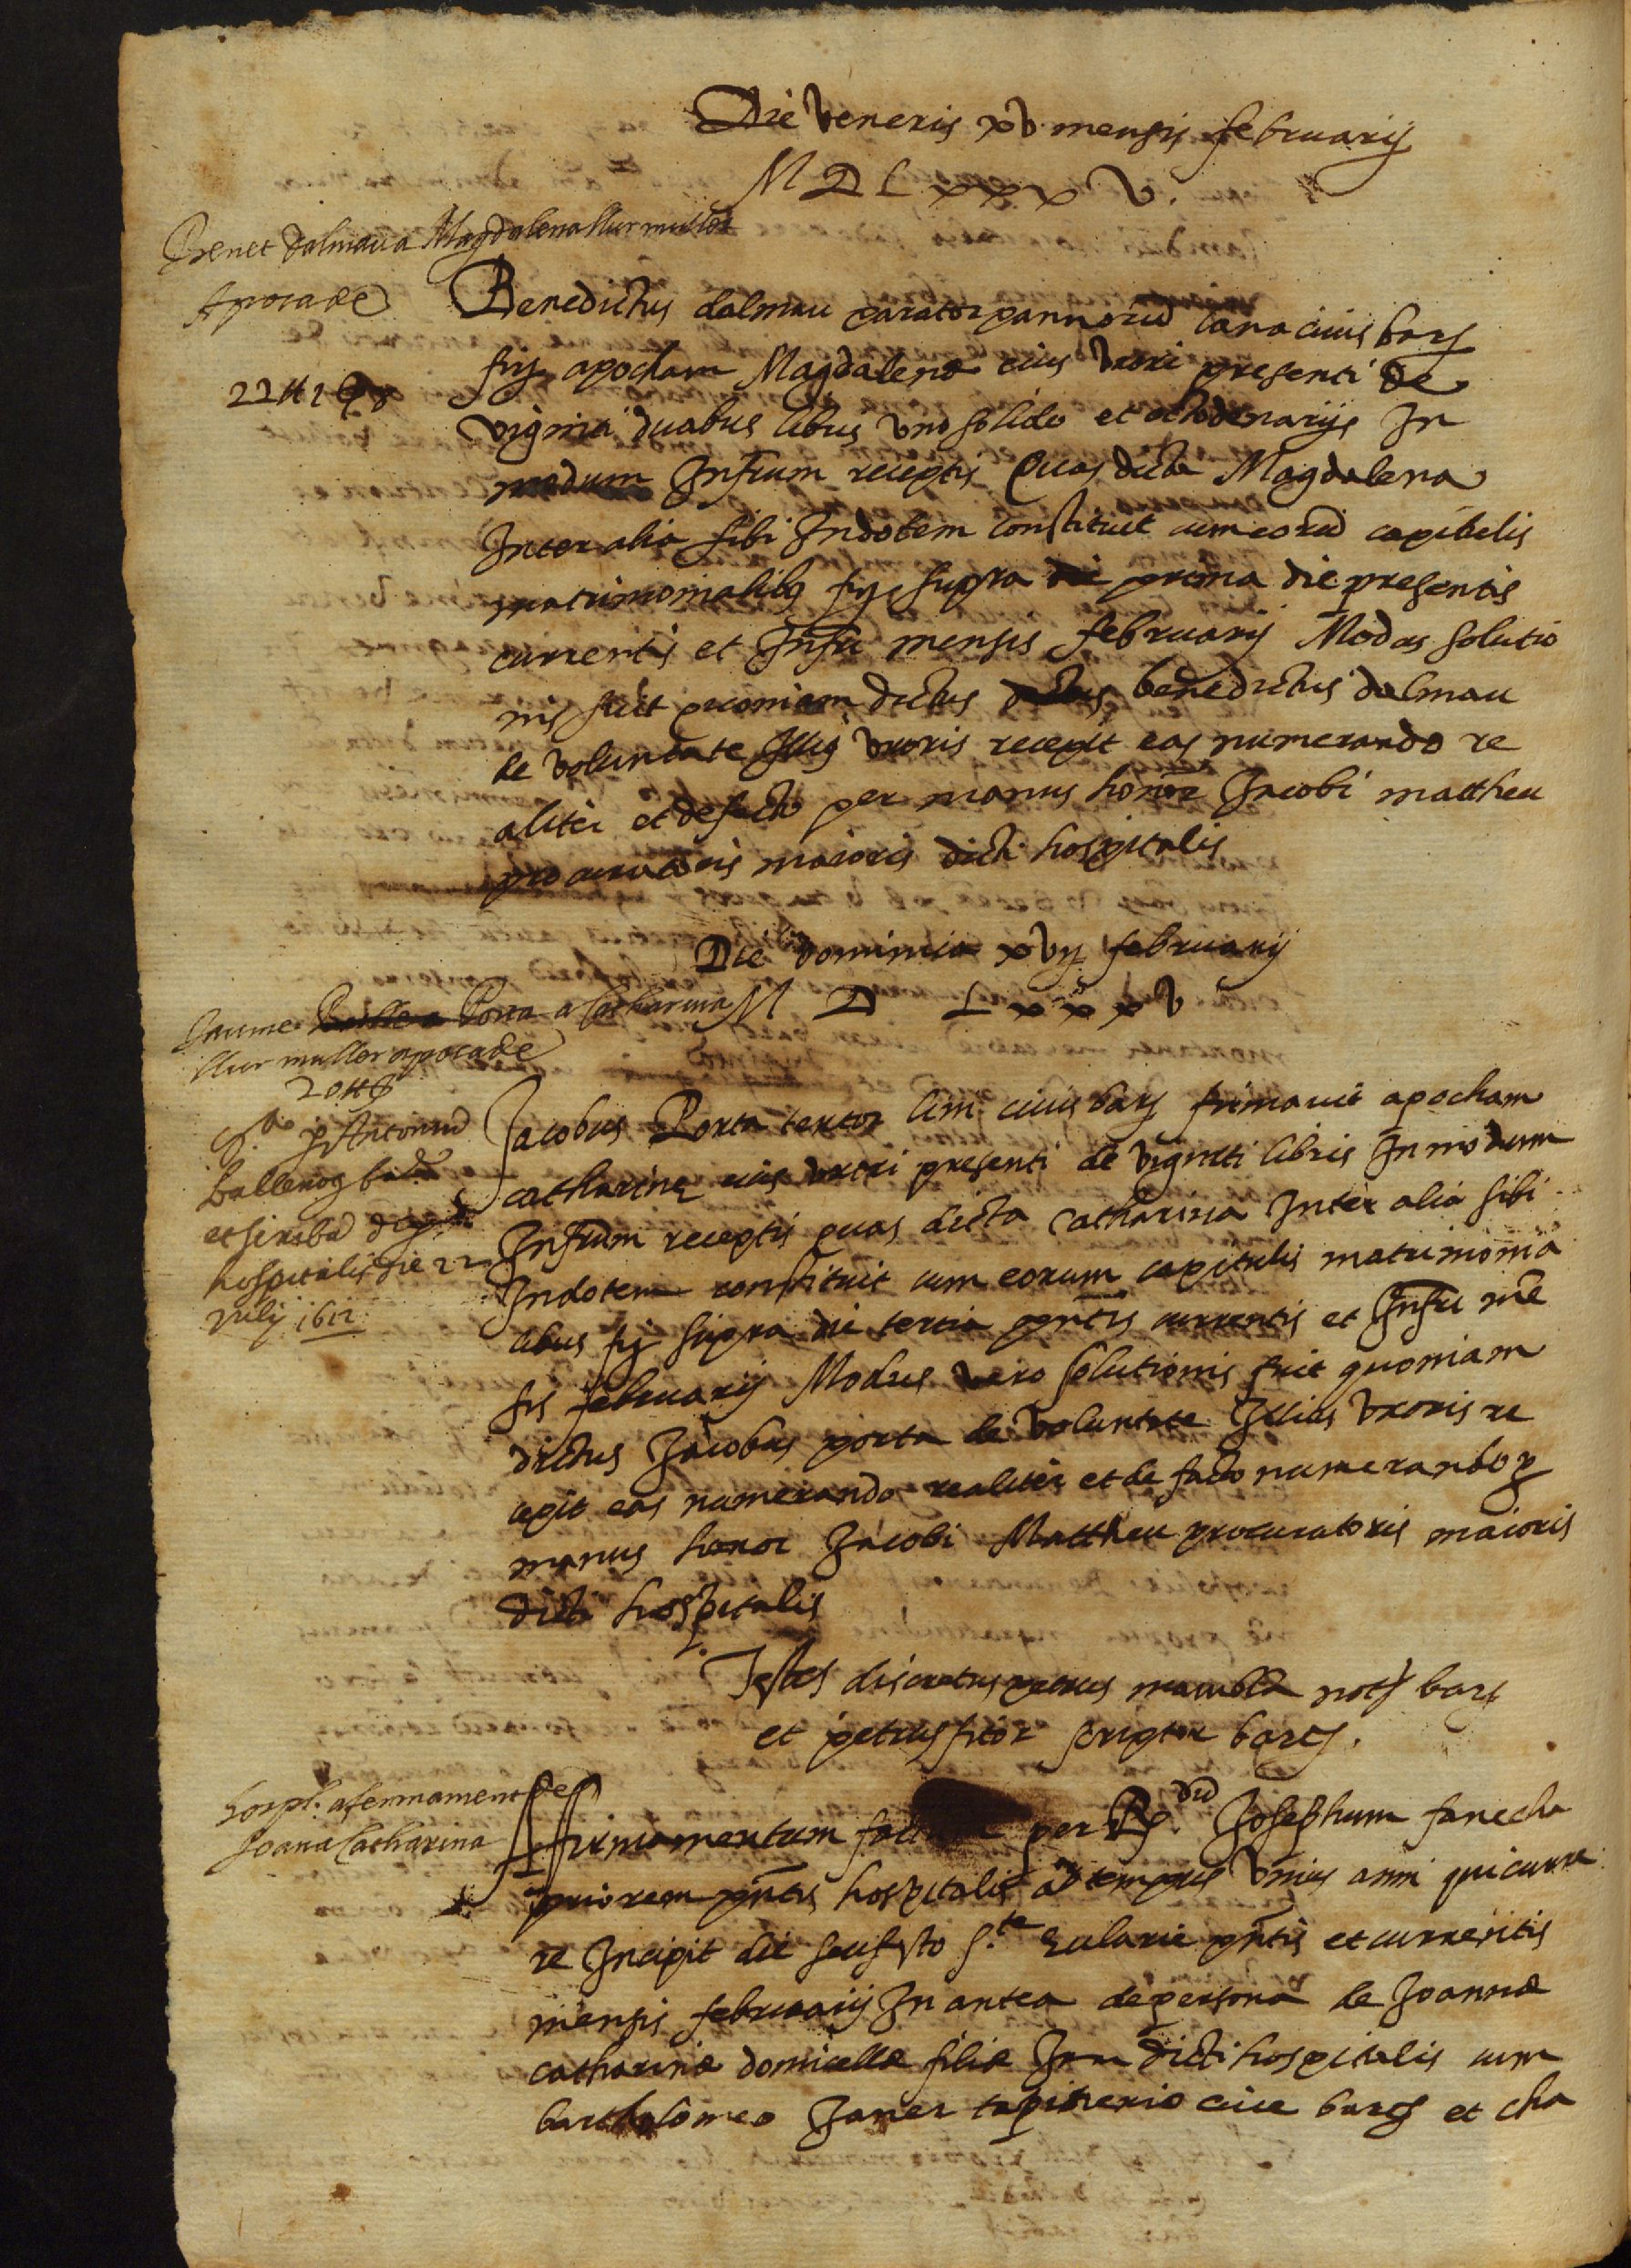 Die Veneris xv mensis februarij
M D L xxx v.
Benet dalmau a Magdalena sa muller
Apoca de
22 ll 1 s 8
Benedictus dalmau parator pannorum lana civis barc
fir apocham Magdalene eius uxori presenti de
viginti duabus libris uno solido et octo denarijs In
modum Infrum receptis Quas dicta Magdalena
Inter alia sibi In dotem constituit cum eorum capitulis
matrimonialibus fir supra die prima die presentis
currentis et Infri mensis februarij Modus solutio
nis fuit quoniam dictus dictus benedictus dalmau
de voluntate Illius uxoris recepit eas numerando re
aliter et de facto per manus honor Jacobi mattheu
procuratoris maioris dicti hospitalis
Die dominica xvij februarij
M D L xxx v
Jaume Porta a Catharina
sa muller apoca de
20 ll s
per Antonium
et scriba
hospitalis die 22
Julij 1612
Jacobus Porta textor lini civis barc firmavit apocham
catharine eius uxori presenti de viginti libris In modum
Infrum receptis quas dicta Catharina Inter alia sibi
In dotem constituit cum eorum capitulis matrimonia
libus fir supra die tertia pntis currentis et Infri me
sis februarij Modus vero solutionis fuit quoniam
dictus Jacobus porta de voluntate Illius uxoris re
cepit eas numerando realiter et de facto numerando per
manus honor Jacobi Mattheu procuratoris maioris
dicti hospitalis
Testes discretus petrus mambla not barc
et petrus fitor scriptor barc.
hospl. afermament de
Joana Catharina
Affirmamentum factum per Rdum Josephum fanecha
priorem pntis hospitalis ad tempus unius anni qui curre
re Incipit die seu festo S.te Eularie pntis et currentis
mensis februarij In antea de persona de Joanna
catharina domicella filia dicti hospitalis cum
bartholomeo Janer tapinerio cive barc et cha